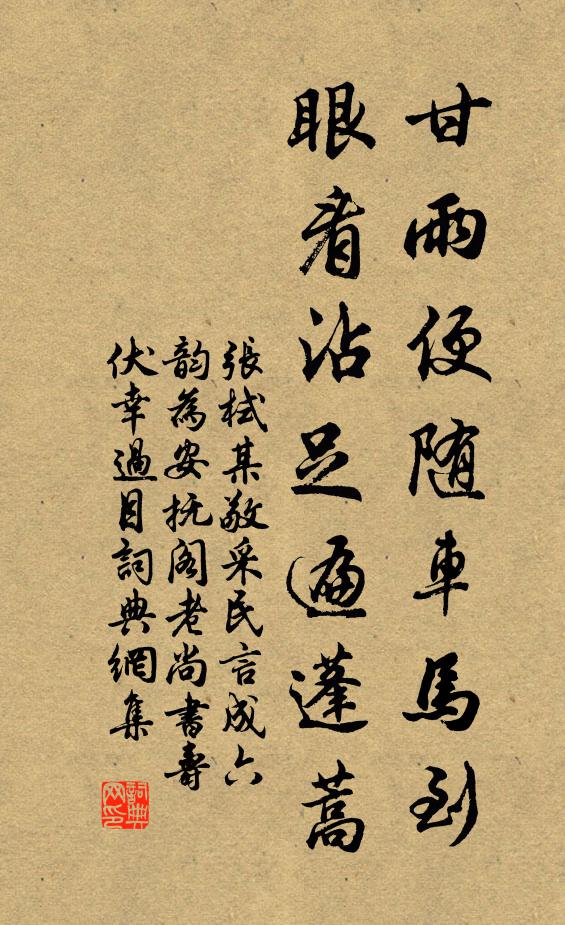 甘雨便随車馬到
眼看沾足遍蓬蒿
張栻某敬采民言成六
韵為安抚阁老尚書壽
伏幸過目詞典網集
詞典网印